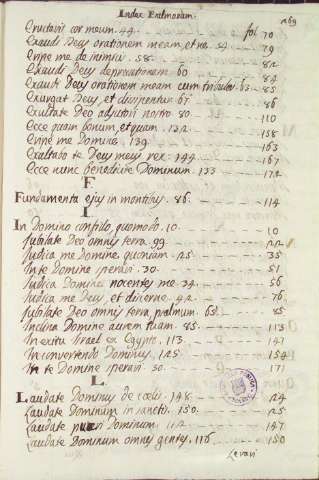 Index Psalmorum.
169
Eructavit cor meum. 44. fol. 70
Exaudi Deus orationem meam, et ne. 54 79
Eripe me de inimicis. 58. 82
Exaudi Deus deprecationem. 60 84
Exaudi Deus orationem meam cum tribulor. 63. 85
Exurgat Deus, et dissipentur. 67. 86
Exultate Deo adjutori nostro. 80 110
Ecce quam bonum, et quam. 132 158
Eripe me Domine. 139. 163
Exaltabo te Deus meus rex. 144 167
Ecce nunc benedicite Dominum. 133 172
F
Fundamenta ejus in montibus. 86. 114
I
In Domino confido, quomodo. 10. 10
Jubilate Deo omnis terra. 99. 22
Judica me Domine, quoniam. 25 35
In te Domine speravi. 30. 51
Judica Domine nocentes me. 34. 56
Judica me Deus, et discerne. 42. 76
Jubilate Deo omnis terra, psalmum. 65. 85
Inclina Domine aurem tuam. 85. 113
In exitu Israel ex Egypto. 113. 147
In convertendo Dominus. 125. 154
In te Domine speravi. 30. 171
L
Laudate Dominum de cœlis. 148. 24
Laudate Dominum in sanctis. 150. 25
Laudate pueri Dominum. 112. 147
Laudate Dominum omnes gentes. 116. 150
Levavi